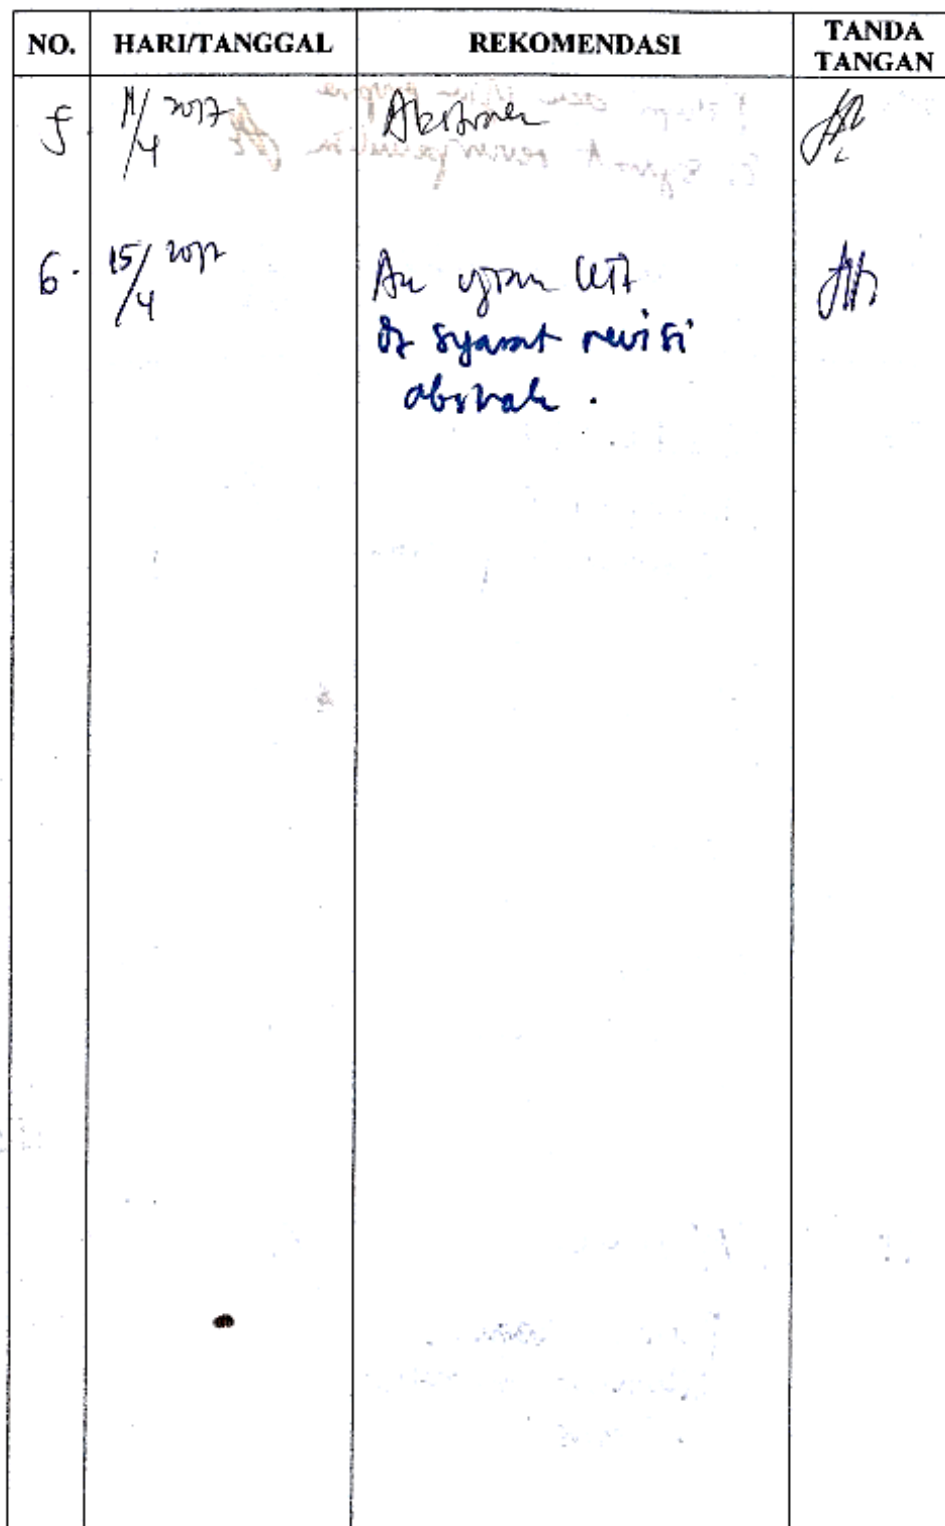 NO. HARI/TANGGAL REKOMENDASI TANDA TANGAN
5. 11/4 2017 Abstrak
6. 15/4 2017 Acc ujian
syarat revisi
abstrak.